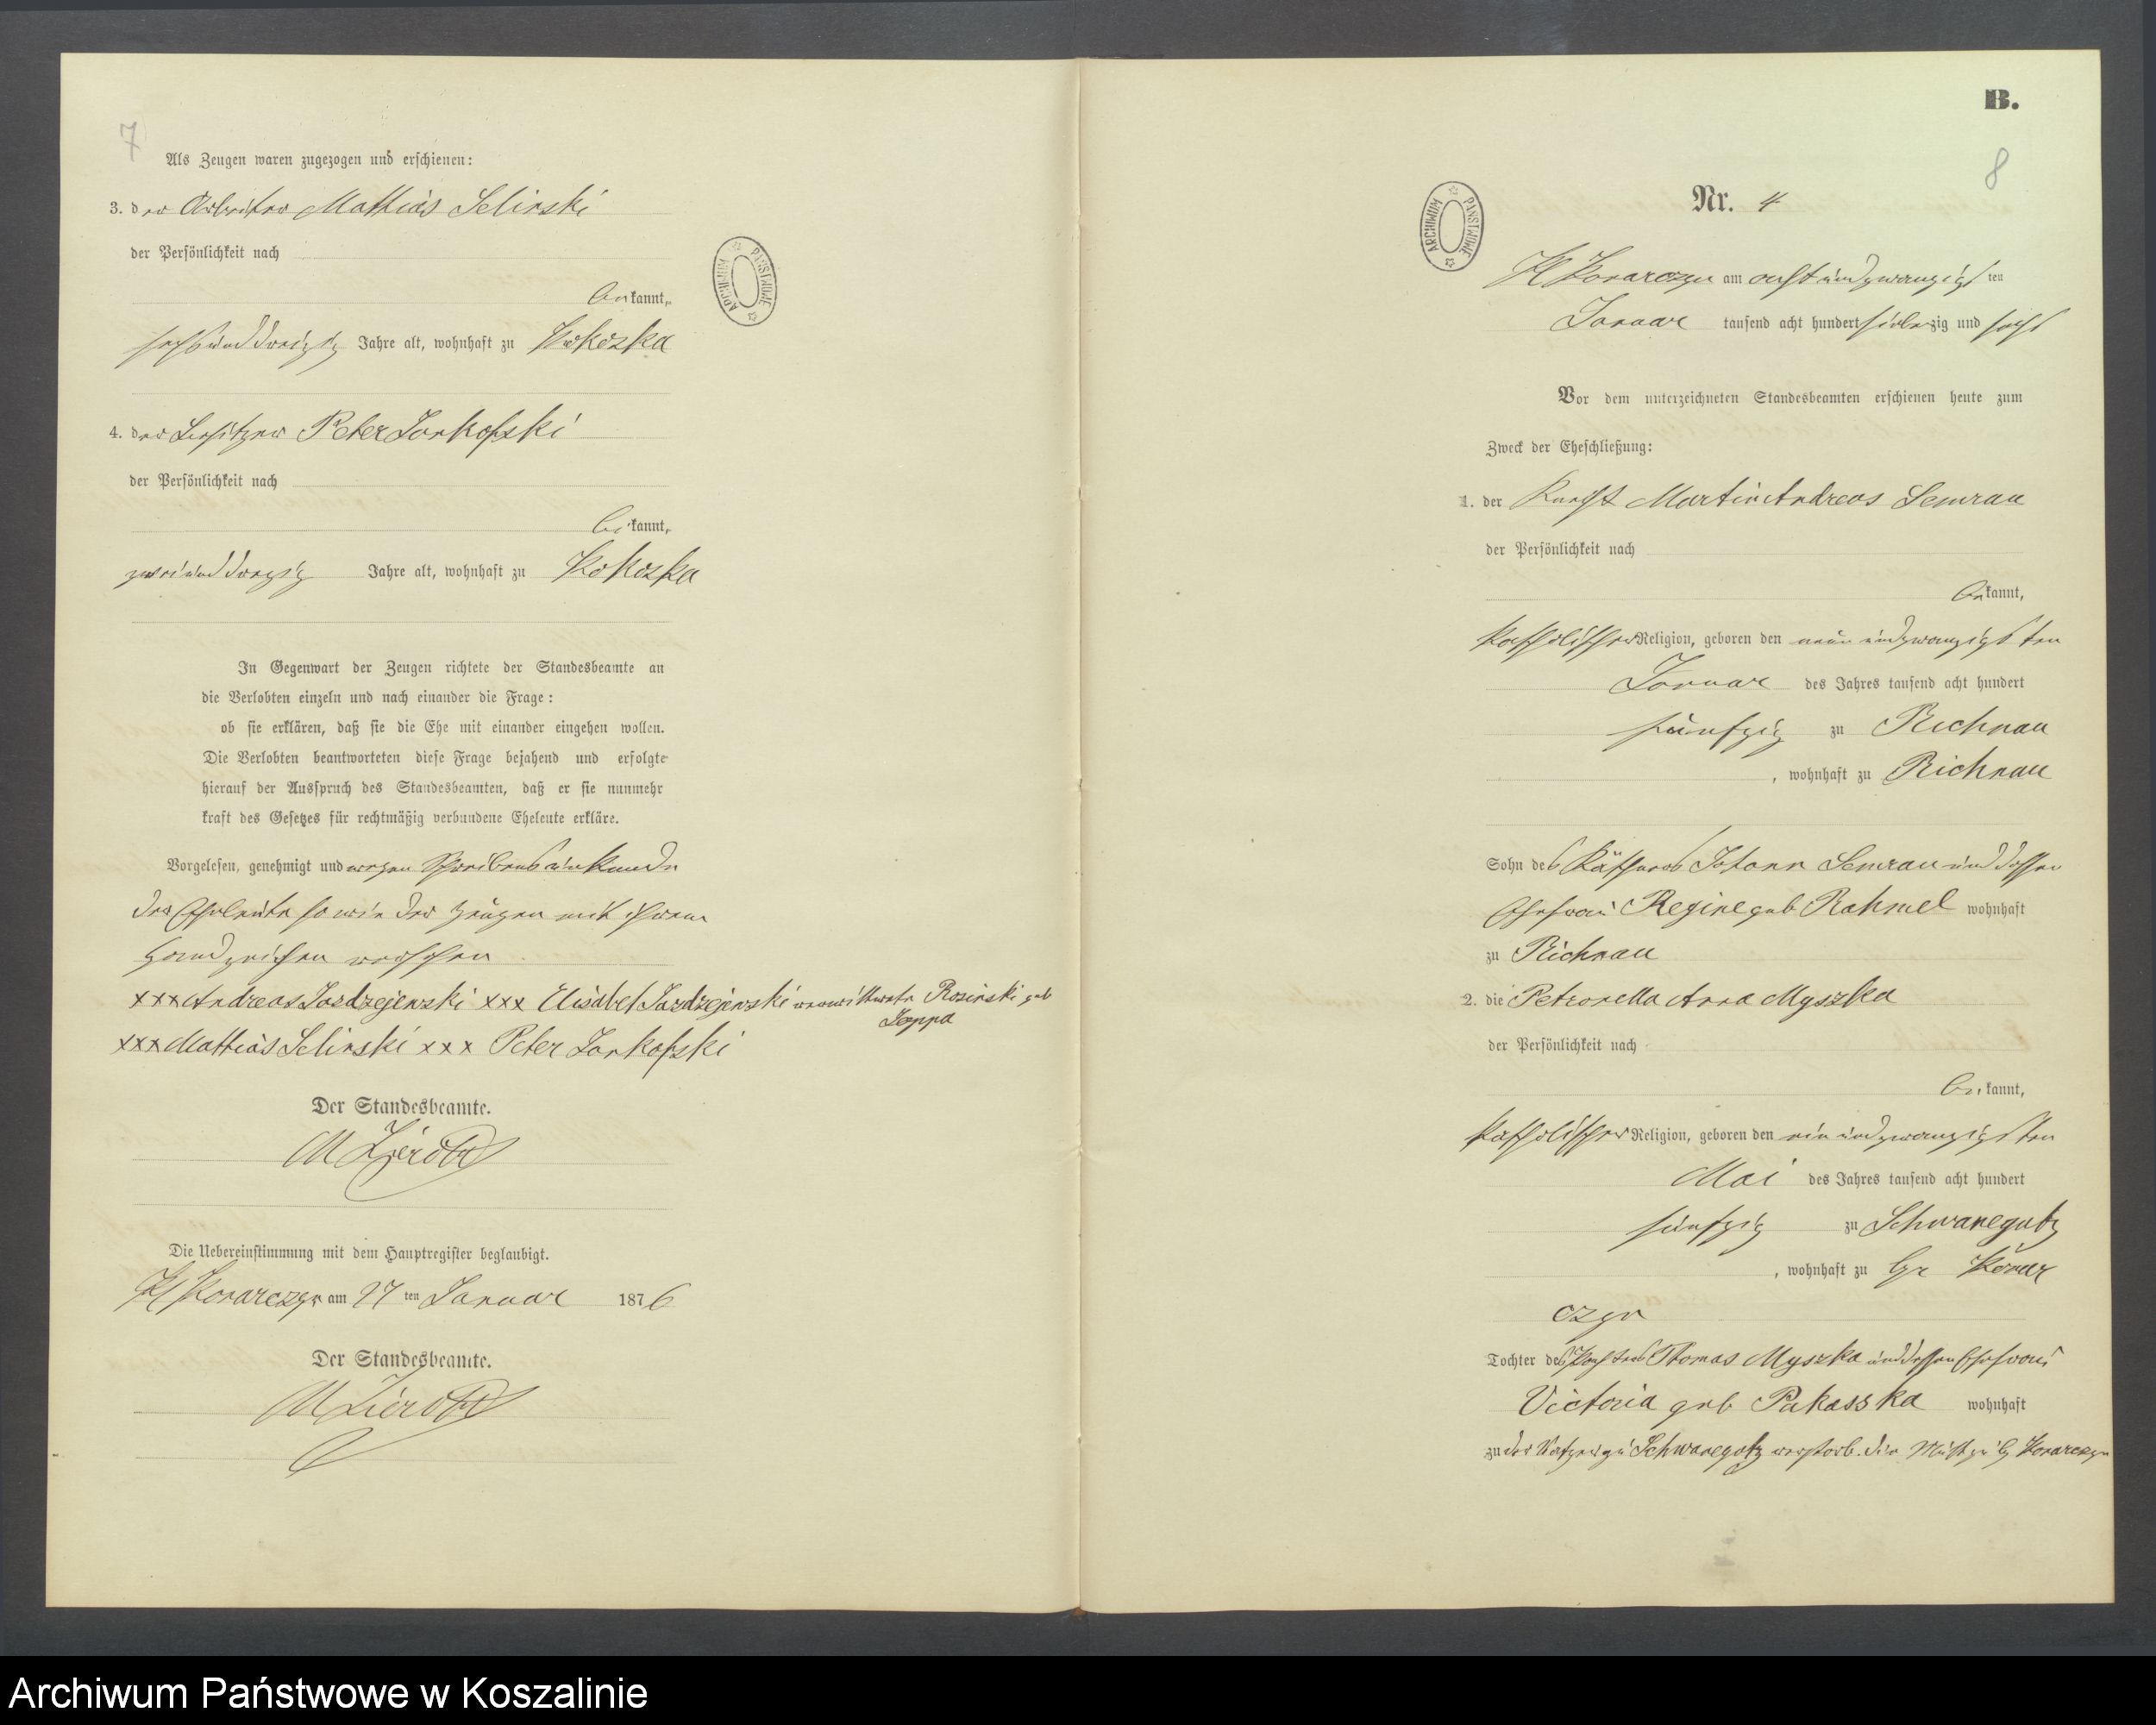 7
Als Zeugen waren zugezogen und erschienen:
3. der Arbeiter Mathias Selinski
der Persönlichkeit nach
bekannt,
sechsunddreißig Jahre alt, wohnhaft zu Kokoszka
4. der Besitzer Peter Jankofski
der Persönlichkeit nach
bekannt,
zweiunddreizig Jahre alt, wohnhaft zu Kokoszka
In Gegenwart der Zeugen richtete der Standesbeamte an
die Verlobten einzeln und nach einander die Frage:
ob sie erklären, daß sie die Ehe mit einander eingehen wollen.
Die Verlobten beantworteten diese Frage bejahend und erfolgte
hierauf der Ausspruch des Standesbeamten, daß er sie nunmehr
kraft des Gesetzes für rechtmäßig verbundene Eheleute erkläre.
Vorgelesen, genehmigt und wegen Schreibensunkunde
der Eheleute so wie der Zeugen mit ihrem
Handzeichen versehen
xxx Andreas Jasdzejewski xxx Elisabet Jasdzejewski verwittwete Rosinski geb
Jeppa
xxx Mathias Selinski xxx Peter Jankofski
Der Standesbeamte.
Die Uebereinstimmung mit dem Hauptregister beglaubigt.
Kl Konarczyn am 27 ten Januar 1876
Der Standesbeamte.
ARCHIWUM PAŃSTWOWE
B.
8
ARCHIWUM PAŃSTWOWE
Nr. 4
Kl Konarczyn am achtundzwanzigsten
Januar tausend acht hundert siebenzig und sechs
Vor dem unterzeichneten Standesbeamten erschienen heute zum
Zweck der Eheschließung:
1. der Knecht Martin Andreas Semrau
der Persönlichkeit nach
bekannt,
katholischer Religion, geboren den neunundzwanzigsten
Januar des Jahres tausend acht hundert
fünfzig zu Richnau
, wohnhaft zu Richnau
Sohn des Käthners Johann Semrau und dessen
Ehefrau Regine geb Rahmel wohnhaft
zu Richnau
2. die Petronella Anna Myszka
der Persönlichkeit nach
bekannt,
katholischer Religion, geboren den einundzwanzigsten
Mai des Jahres tausend acht hundert
fünfzig zu Schwanegatz
, wohnhaft zu Gr Konar
czyn
Tochter des Thomas Myszka und dessen Ehefrau
Victoria geb Pakasska wohnhaft
zu der Vater zu Schwanegatz verstorb. die Mutt zu Konarczyn
Archiwum Państwowe w Koszalinie